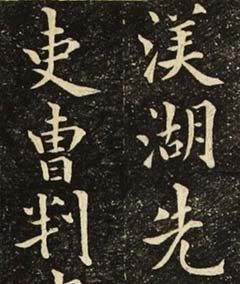 渼湖先
吏曺判